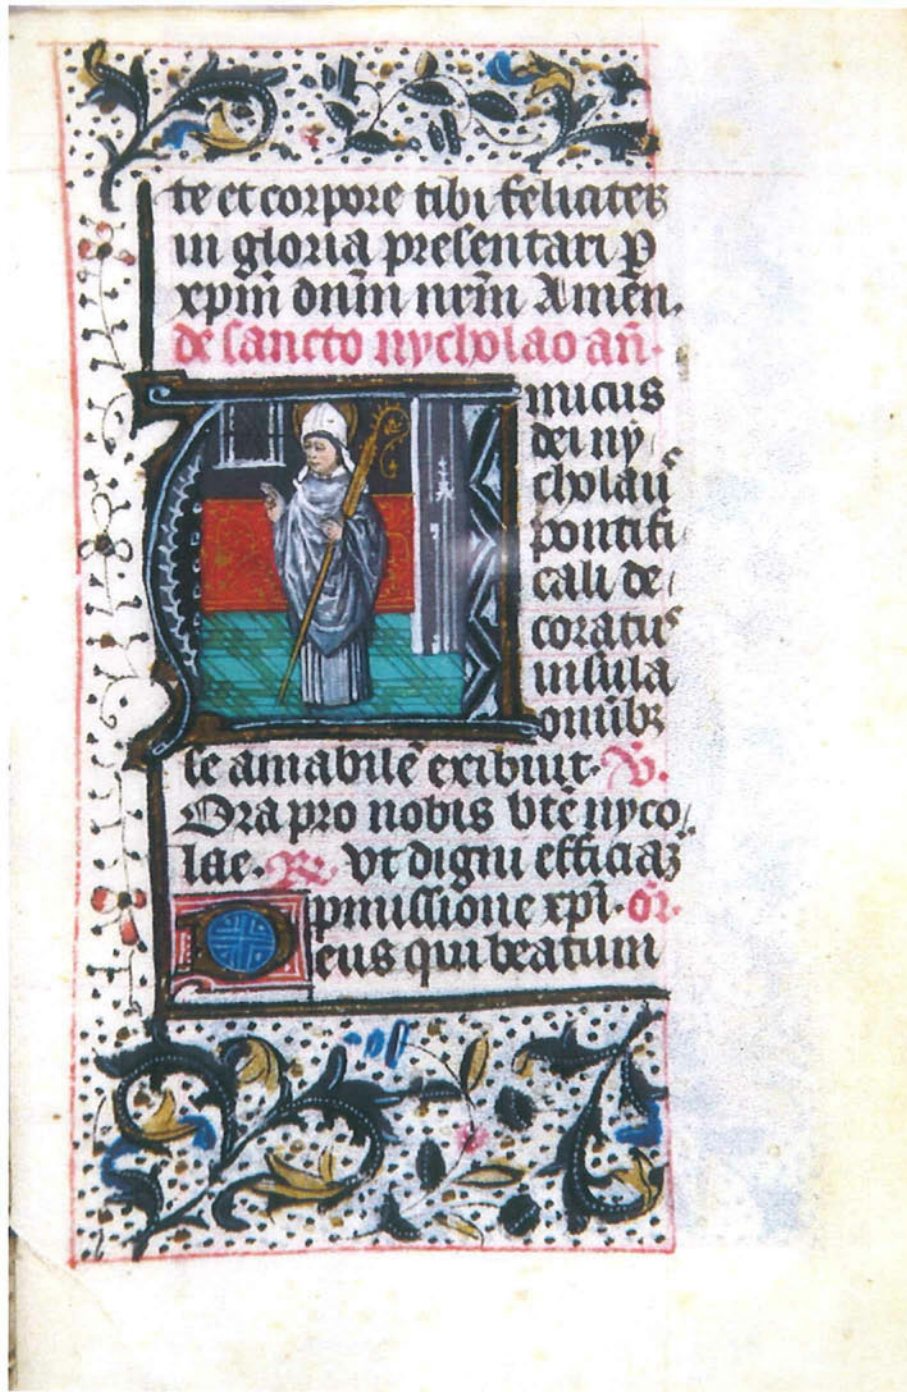 te et corpore tibi feliciter
in gloria presentari p̲
xpm̄ dn̄m nr̄m Amen.
de sancto nycholao an̄.
Amicus
dei ny
cholaus
pontifi
cali de
coratus
insula
omībꝫ
se amabilē exibuit. V̄.
Ora pro nobis btē nyco
lae. R̄ Vt digni efficiaꝫ
pmissione xpī. or̄.
Deus qui beatum